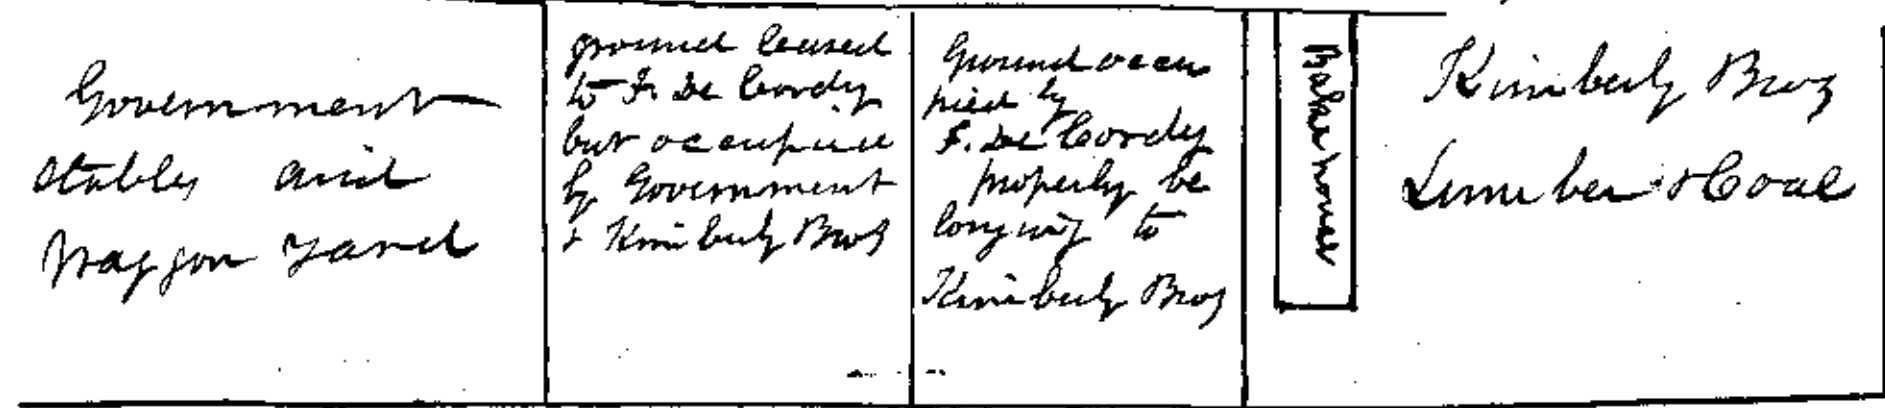 Government
stables and
Waggon Yard
ground leased
to F. De Cordy
but occupied
by Government
& Kimberly Bros
Ground occu
pied by
F. De Cordy
properly be
longing to
Kimberly Bros
Bake house
Kimberly Bros
Lumber & Coal